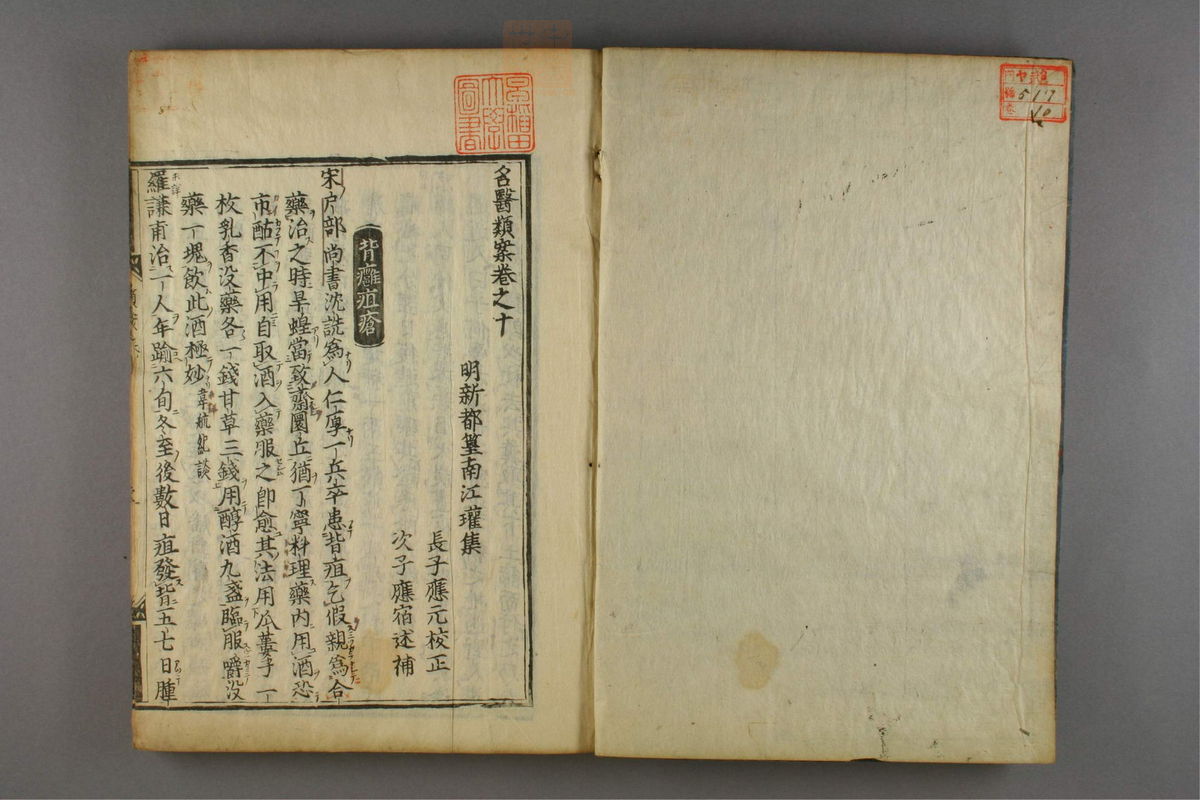 名醫類案卷之十
明新都篁南江瓘集
長子應元校正
次子應宿述補
背癰疽瘡
宋戶部尚書沈詵爲人仁厚一兵卒患背疽乞假親爲合
藥治之時旱蝗當致齋圜丘猶丁寧料理藥內用酒恐
市酤不中用自取酒入藥服之卽愈其法用瓜蔞子一
枚乳香没藥各一錢甘草三錢用醇酒九盞臨服嚼没
藥一塊飲此酒極妙 韋航紀談
羅謙甫治一人年踰六旬冬至後數日疽發背五七日腫
未詳
早稲田大學圖書
517
10